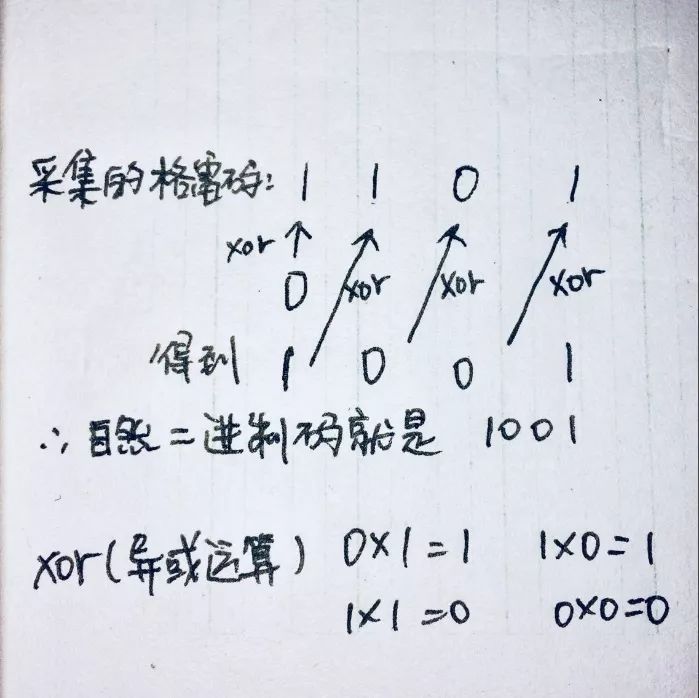 采集的格雷码: 1 1 0 1
xor ↑ ↗ ↗ ↗
0 xor xor xor
得到 1 0 0 1
∴ 自然二进制码就是 1001
xor(异或运算) 0×1=1 1×0=1
1×1=0 0×0=0